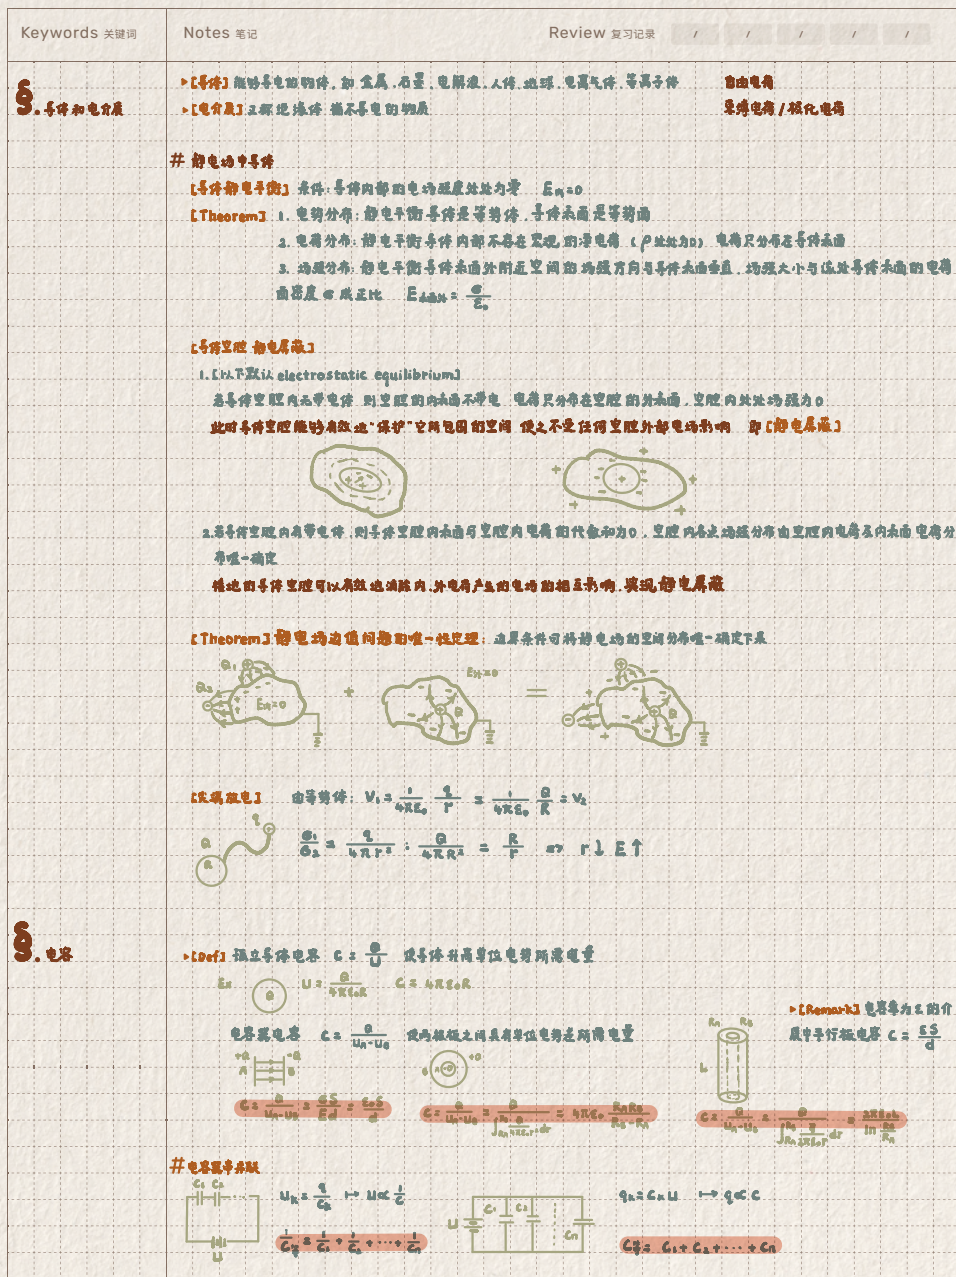 Keywords 关键词 Notes 笔记 Review 复习记录 / / / / /
§.导体和电介质
▸[导体] 能够导电的物体,如 金属,石墨,电解液,人体,地球,电离气体,等离子体 自由电荷
▸[电介质] 又称绝缘体 指不导电的物质 束缚电荷/极化电荷
# 静电场中导体
[导体静电平衡] 条件:导体内部的电场强度处处为零 E内=0
[Theorem] 1. 电势分布:静电平衡导体是等势体,导体表面是等势面
2. 电荷分布:静电平衡导体内部不存在宏观的净电荷 (ρ处处为0) 电荷只分布在导体表面
3. 场强分布:静电平衡导体表面外附近空间的场强方向与导体表面垂直,场强大小与该处导体表面的电荷
面密度σ成正比 E表面外 = σ/ε₀
[导体空腔 静电屏蔽]
1.[以下默认 electrostatic equilibrium]
若导体空腔内无带电体 则空腔的内表面不带电 电荷只分布在空腔的外表面,空腔内处处场强为0
此时导体空腔能够有效地"保护"它所包围的空间 使之不受任何空腔外部电场影响 即[静电屏蔽]
2.若导体空腔内有带电体,则导体空腔内表面与空腔内电荷的代数和为0,空腔内各点场强分布由空腔内电荷及内表面电荷分
布唯一确定
接地的导体空腔可以有效地消除内,外电荷产生的电场的相互影响,实现静电屏蔽
[Theorem] 静电场边值问题的唯一性定理:边界条件可将静电场的空间分布唯一确定下来
Q₁ Q₂ E内=0 + E外=0 Q = Q
[尖端放电] 由等势体: V₁ = 1/4πε₀ q/r = 1/4πε₀ Q/R = V₂
q Q R
σ₁/σ₂ = q/4πr² : Q/4πR² = R/r => r↓ E↑
§.电容
▸[Def] 孤立导体电容 C = Q/U 使导体升高单位电势所需电量
Ex Q U = Q/4πε₀R C = 4πε₀R
▸[Remark] 电容率为ε的介
质中平行板电容 C = εS/d
电容器电容 C = Q/(U_A-U_B) 使两极板之间具有单位电势差所需电量
+Q -Q A B
B A +Q
R_A R_B L
C = Q/(U_A-U_B) = εS/Ed = ε₀S/d
C = Q/(U_A-U_B) = Q/∫_{R_A}^{R_B} Q/4πε₀r² dr = 4πε₀ R_A R_B/(R_B-R_A)
C = Q/(U_A-U_B) = Q/∫_{R_A}^{R_B} q/2πε₀r dr = 2πε₀L/ln R_B/R_A
#电容器串并联
C₁ C₂ ··· U
U_k = q/C_k ↦ U∝1/C
1/C等 = 1/C₁ + 1/C₂ + ··· + 1/Cn
U C₁ C₂ Cn
q_k = C_k U ↦ q∝C
C等 = C₁ + C₂ + ··· + Cn